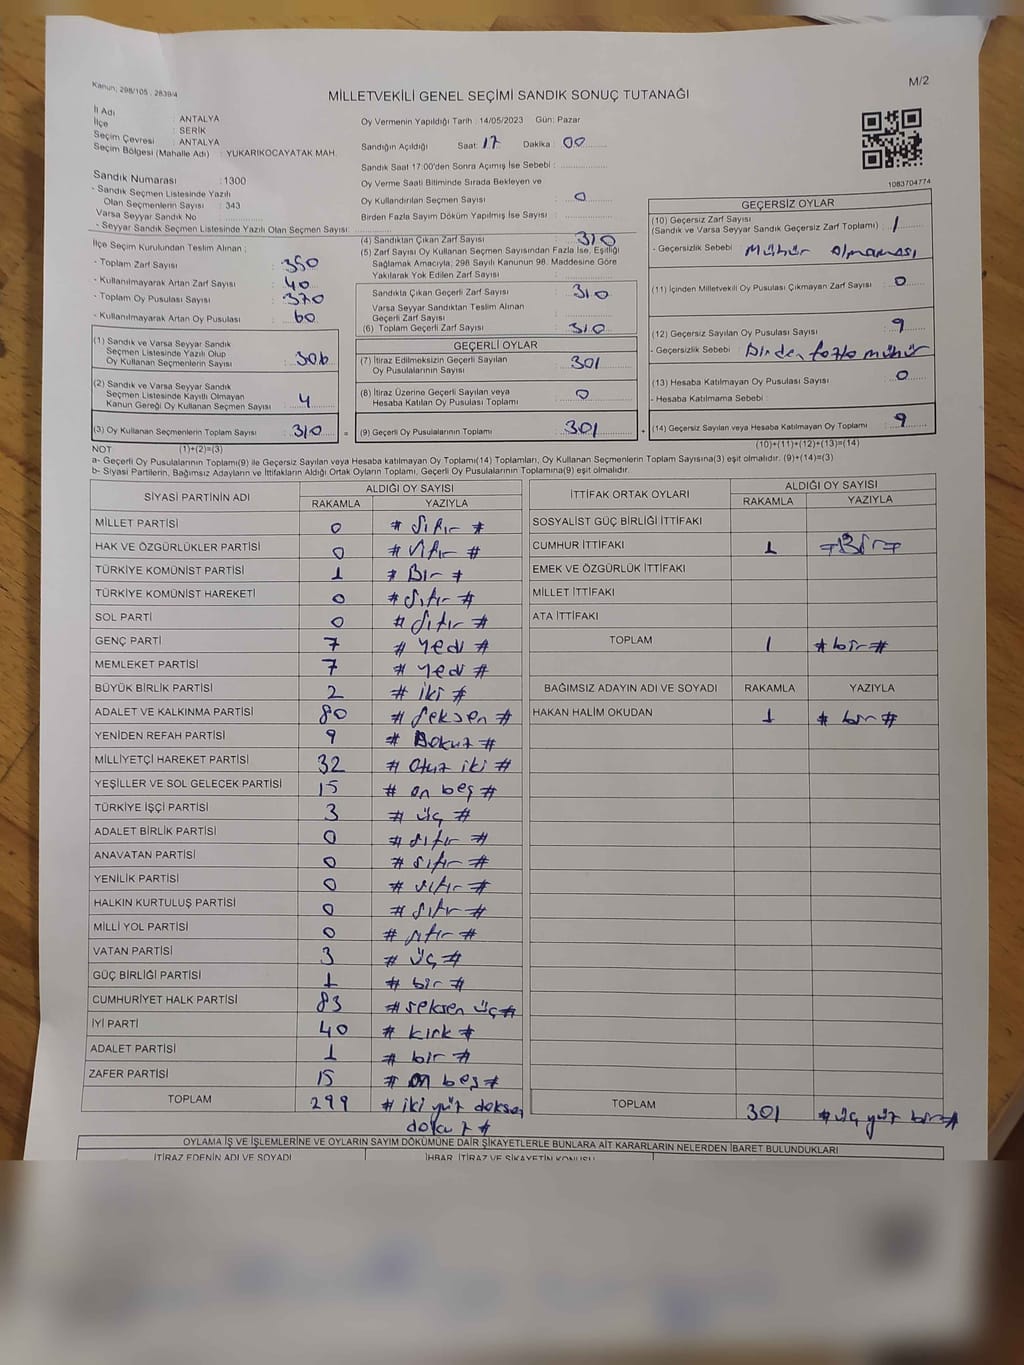 Kanun; 298/105 , 2839/4
M/2
MİLLETVEKİLİ GENEL SEÇİMİ SANDIK SONUÇ TUTANAĞI
İl Adı : ANTALYA
İlçe : SERİK
Seçim Çevresi : ANTALYA
Seçim Bölgesi (Mahalle Adı) : YUKARIKOCAYATAK MAH.
Sandık Numarası : 1300
- Sandık Seçmen Listesinde Yazılı
Olan Seçmenlerin Sayısı : 343
Varsa Seyyar Sandık No
- Seyyar Sandık Seçmen Listesinde Yazılı Olan Seçmen Sayısı:
İlçe Seçim Kurulundan Teslim Alınan ;
- Toplam Zarf Sayısı : 350
- Kullanılmayarak Artan Zarf Sayısı : 40
- Toplam Oy Pusulası Sayısı : 370
- Kullanılmayarak Artan Oy Pusulası : 60
(1) Sandık ve Varsa Seyyar Sandık
Seçmen Listesinde Yazılı Olup
Oy Kullanan Seçmenlerin Sayısı : 306
(2) Sandık ve Varsa Seyyar Sandık
Seçmen Listesinde Kayıtlı Olmayan
Kanun Gereği Oy Kullanan Seçmen Sayısı : 4
(3) Oy Kullanan Seçmenlerin Toplam Sayısı : 310 =
Oy Vermenin Yapıldığı Tarih : 14/05/2023 Gün: Pazar
Sandığın Açıldığı Saat: 17 Dakika : 00
Sandık Saat 17:00'den Sonra Açımış İse Sebebi :
Oy Verme Saati Bitiminde Sırada Bekleyen ve
Oy Kullandırılan Seçmen Sayısı : 0
Birden Fazla Sayım Döküm Yapılmış İse Sayısı :
(4) Sandıktan Çıkan Zarf Sayısı : 310
(5) Zarf Sayısı Oy Kullanan Seçmen Sayısından Fazla İse, Eşitliği
Sağlamak Amacıyla; 298 Sayılı Kanunun 98. Maddesine Göre
Yakılarak Yok Edilen Zarf Sayısı :
Sandıkta Çıkan Geçerli Zarf Sayısı : 310
Varsa Seyyar Sandıktan Teslim Alınan
Geçerli Zarf Sayısı :
(6) Toplam Geçerli Zarf Sayısı : 310
GEÇERLİ OYLAR
(7) İtiraz Edilmeksizin Geçerli Sayılan
Oy Pusulalarının Sayısı : 301
(8) İtiraz Üzerine Geçerli Sayılan veya
Hesaba Katılan Oy Pusulası Toplamı : 0
(9) Geçerli Oy Pusulalarının Toplamı : 301 +
1083704774
GEÇERSİZ OYLAR
(10) Geçersiz Zarf Sayısı
(Sandık ve Varsa Seyyar Sandık Geçersiz Zarf Toplamı) : 1
- Geçersizlik Sebebi : Mühür olmaması
(11) İçinden Milletvekili Oy Pusulası Çıkmayan Zarf Sayısı : 0
(12) Geçersiz Sayılan Oy Pusulası Sayısı : 9
- Geçersizlik Sebebi : Birden fazla mühür
(13) Hesaba Katılmayan Oy Pusulası Sayısı : 0
- Hesaba Katılmama Sebebi :
(14) Geçersiz Sayılan veya Hesaba Katılmayan Oy Toplamı : 9
NOT (1)+(2)=(3) (10)+(11)+(12)+(13)=(14)
a- Geçerli Oy Pusulalarının Toplamı(9) ile Geçersiz Sayılan veya Hesaba katılmayan Oy Toplamı(14) Toplamları, Oy Kullanan Seçmenlerin Toplam Sayısına(3) eşit olmalıdır. (9)+(14)=(3)
b- Siyasi Partilerin, Bağımsız Adayların ve İttifakların Aldığı Ortak Oyların Toplamı, Geçerli Oy Pusulalarının Toplamına(9) eşit olmalıdır.
SİYASİ PARTİNİN ADI ALDIĞI OY SAYISI
RAKAMLA YAZIYLA
MİLLET PARTİSİ 0 # sıfır #
HAK VE ÖZGÜRLÜKLER PARTİSİ 0 # sıfır #
TÜRKİYE KOMÜNİST PARTİSİ 1 # Bir #
TÜRKİYE KOMÜNİST HAREKETİ 0 # sıfır #
SOL PARTİ 0 # sıfır #
GENÇ PARTİ 7 # Yedi #
MEMLEKET PARTİSİ 7 # Yedi #
BÜYÜK BİRLİK PARTİSİ 2 # iki #
ADALET VE KALKINMA PARTİSİ 80 # seksen #
YENİDEN REFAH PARTİSİ 9 # Dokuz #
MİLLİYETÇİ HAREKET PARTİSİ 32 # otuz iki #
YEŞİLLER VE SOL GELECEK PARTİSİ 15 # on beş #
TÜRKİYE İŞÇİ PARTİSİ 3 # üç #
ADALET BİRLİK PARTİSİ 0 # sıfır #
ANAVATAN PARTİSİ 0 # sıfır #
YENİLİK PARTİSİ 0 # sıfır #
HALKIN KURTULUŞ PARTİSİ 0 # sıfır #
MİLLİ YOL PARTİSİ 0 # sıfır #
VATAN PARTİSİ 3 # üç #
GÜÇ BİRLİĞİ PARTİSİ 1 # bir #
CUMHURİYET HALK PARTİSİ 83 # seksen üç #
İYİ PARTİ 40 # kırk #
ADALET PARTİSİ 1 # bir #
ZAFER PARTİSİ 15 # on beş #
TOPLAM 299 # iki yüz doksan
dokuz #
İTTİFAK ORTAK OYLARI ALDIĞI OY SAYISI
RAKAMLA YAZIYLA
SOSYALİST GÜÇ BİRLİĞİ İTTİFAKI
CUMHUR İTTİFAKI 1 # Bir #
EMEK VE ÖZGÜRLÜK İTTİFAKI
MİLLET İTTİFAKI
ATA İTTİFAKI
TOPLAM 1 # bir #
BAĞIMSIZ ADAYIN ADI VE SOYADI RAKAMLA YAZIYLA
HAKAN HALİM OKUDAN 1 # bir #
TOPLAM 301 # üç yüz bir #
OYLAMA İŞ VE İŞLEMLERİNE VE OYLARIN SAYIM DÖKÜMÜNE DAİR ŞİKAYETLERLE BUNLARA AİT KARARLARIN NELERDEN İBARET BULUNDUKLARI
İTİRAZ EDENİN ADI VE SOYADI İHBAR, İTİRAZ VE ŞİKAYETİN KONUSU